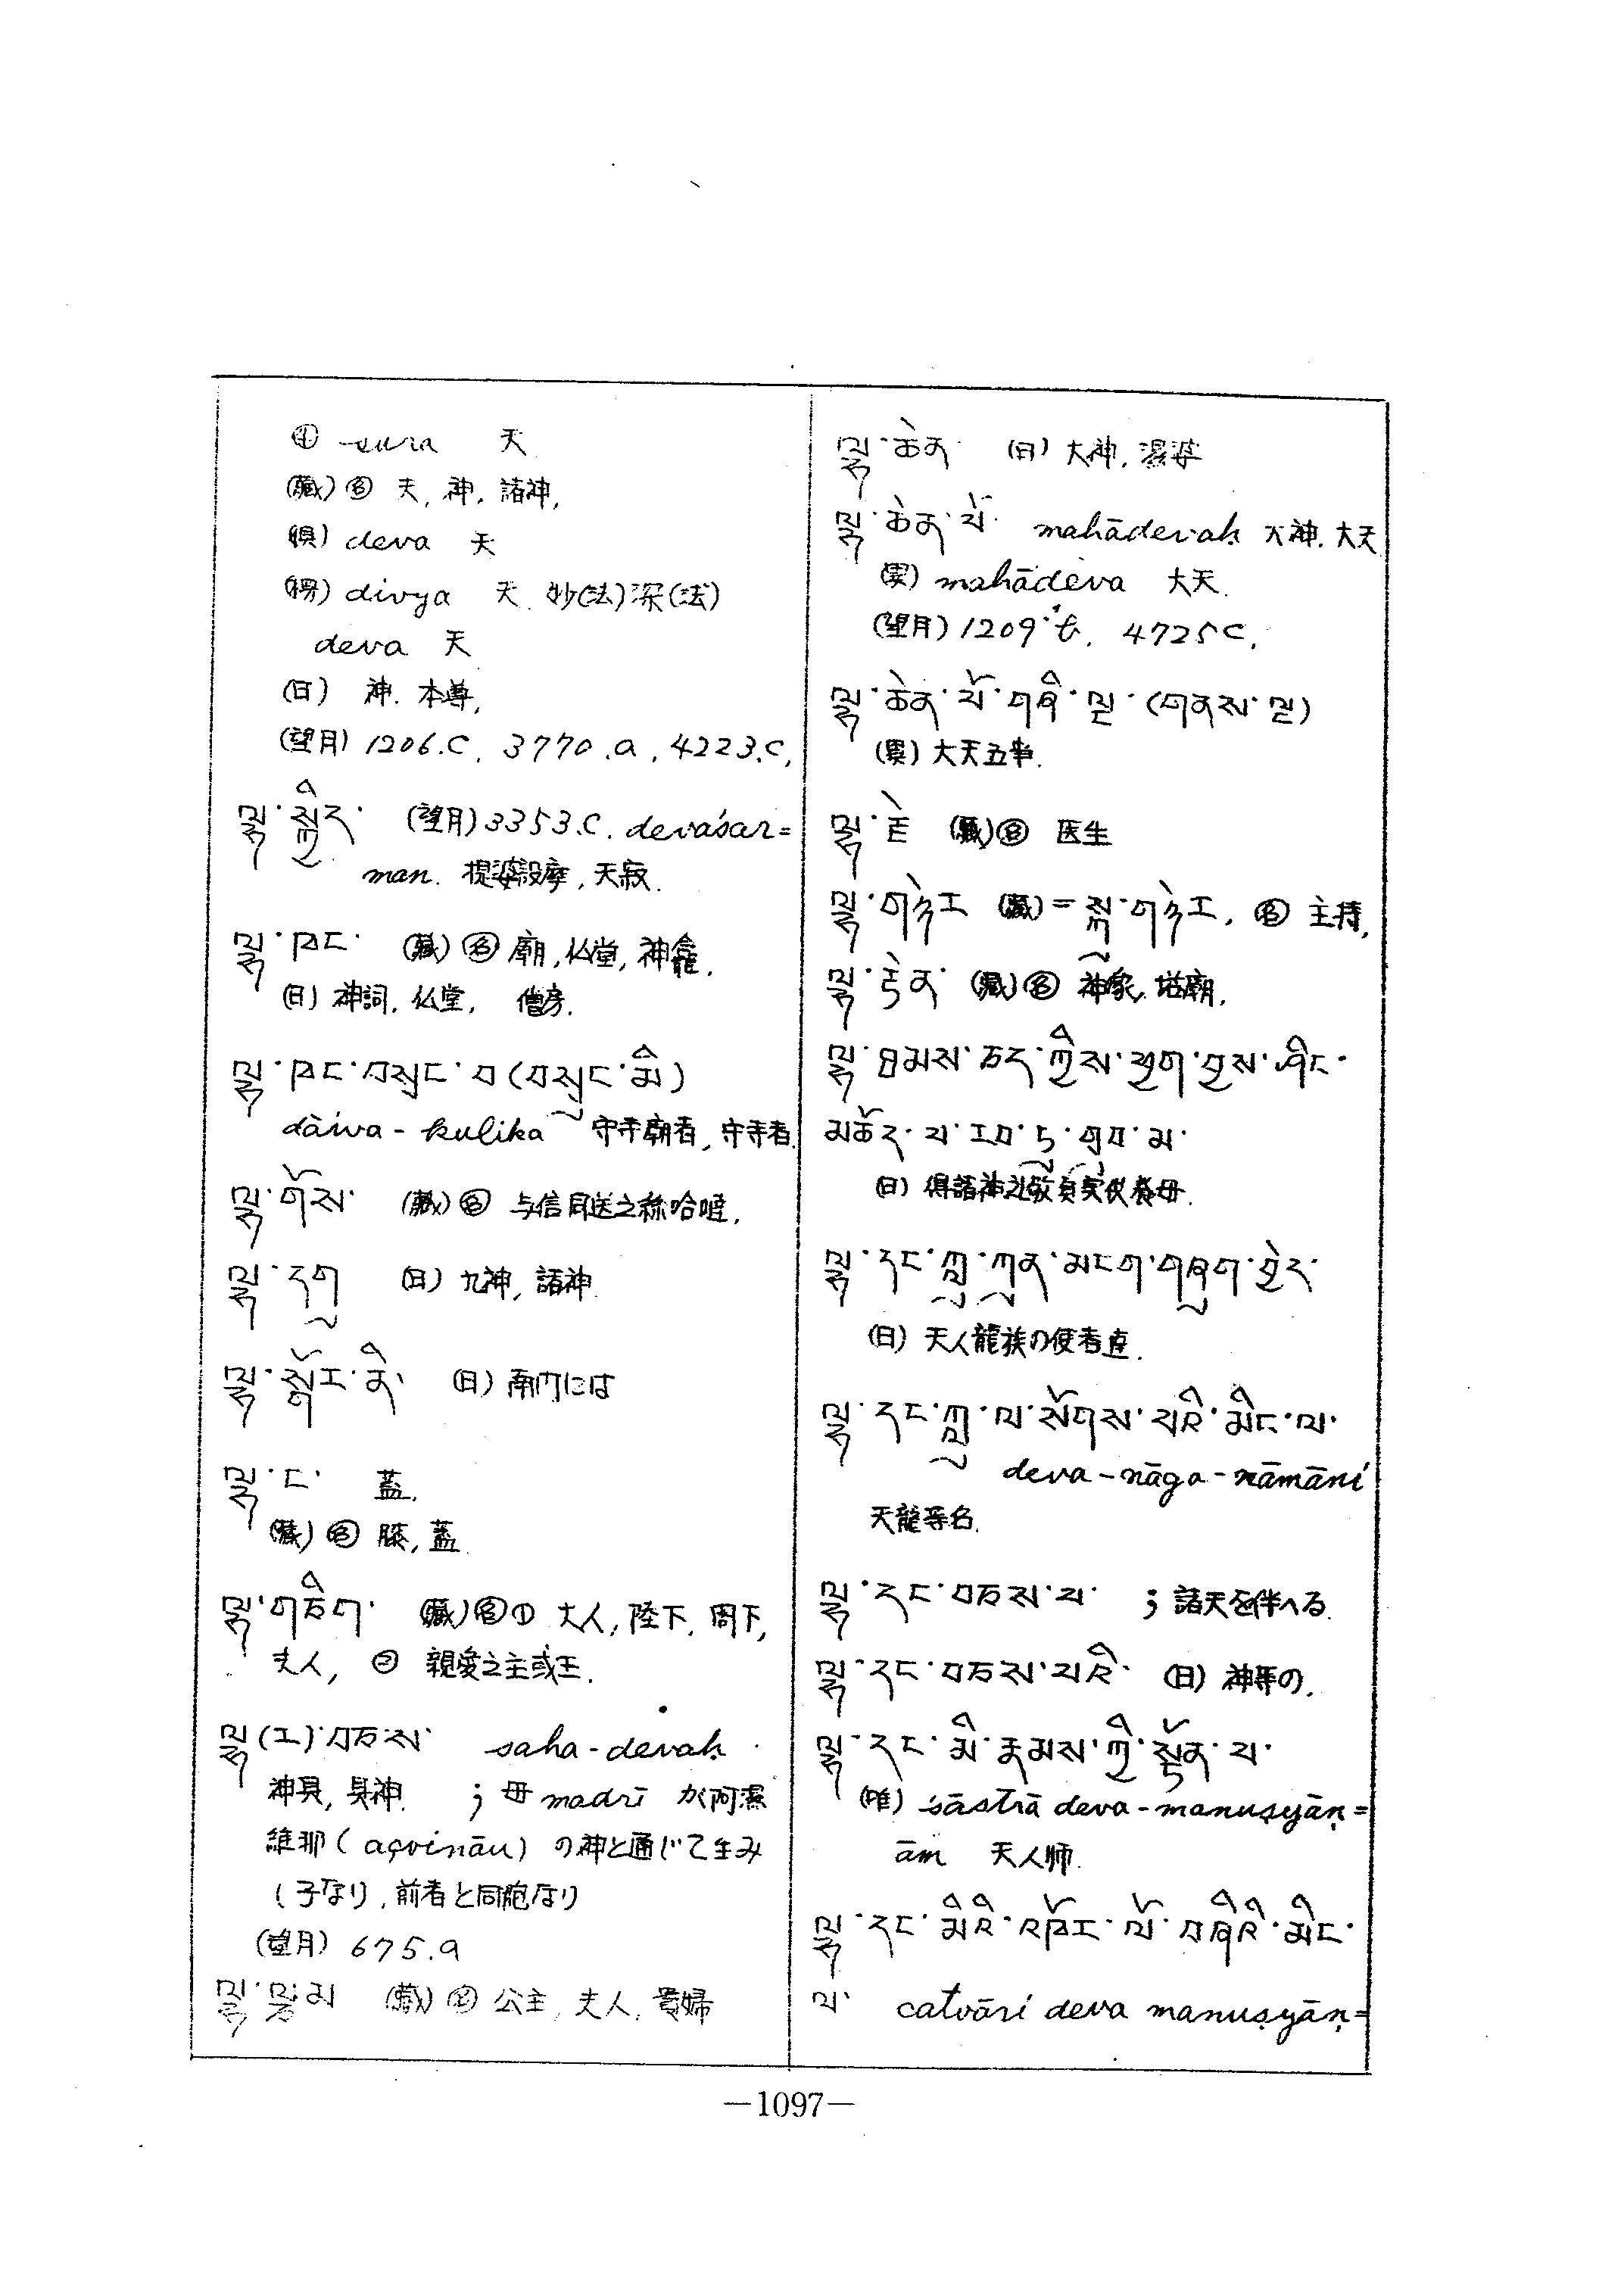 ④ sura 天
(藏)㊔ 天, 神, 諸神,
(倶) deva 天
(楞) divya 天 妙(法)深(法)
deva 天
(日) 神. 本尊,
(望月) 1206.C, 3770.a, 4223.C,
ལྷ་སྐྱིད་ (望月) 3353.C. devaśar=
man. 提婆設摩, 天寂.
ལྷ་ཁང་ (藏)㊔ 廟, 仏堂, 神龕.
(日) 神詞, 仏堂, 僧房.
ལྷ་ཁང་བསྲུང་བ(བསྲུང་མི)
daiva-kulika 守寺廟者, 守寺者.
ལྷ་གོས་ (藏)㊔ 与信同送之称哈噠,
ལྷ་དགུ (日) 九神, 諸神.
ལྷ་སྒོར་ནི་ (日) 南門には
ལྷ་ང་ 蓋,
(藏)㊔ 膝, 蓋
ལྷ་གཅིག་ (藏)㊔① 大人, 陛下, 閣下,
夫人, ② 親愛之主或王.
ལྷ(ར)་བཅས་ saha-devaḥ
神具, 具神. ; 母 madrī が阿濕
維那 (açvināu) の神と通じて生み
し子なり, 前者と同胞なり
(望月) 675.a
ལྷ་ལྕམ (藏)㊔ 公主, 夫人, 貴婦
ལྷ་ཆེན་ (日) 大神, 濕婆
ལྷ་ཆེན་པོ་ mahādevaḥ 大神. 大天
mahādeva 大天.
(望月) 1209.b, 4725C,
ལྷ་ཆེན་པོ་གཞི་ལྔ་(གནས་ལྔ)
大天五事.
ལྷ་རྗེ (藏)㊔ 医生
ལྷ་གཉེར (藏)=སྐུ་གཉེར, ㊔ 主持,
ལྷ་རྟེན་ (藏)㊔ 神像, 塔廟,
ལྷ་ཐམས་ཅད་ཀྱིས་ཕྱག་བྱས་ཤིང་
མཆོད་པ་རབ་ཏུ་གུབ་མ་
(日) 得諸神之敬頁
ལྷ་དང་ཀླུ་ཀུན་མངག་གཞུག་བྱེད་
(日) 天人龍族の使者達.
ལྷ་དང་ཀླུ་ལ་སོགས་པའི་མིང་ལ་
deva-nāga-nāmāni
天龍等名.
ལྷ་དང་བཅས་པ་ ; 諸天を伴へる.
ལྷ་དང་བཅས་པའི་ (日) 神等の.
ལྷ་དང་མི་རྣམས་ཀྱི་སྟོན་པ་
(唯) śāstrā deva-manuṣyāṇ=
ām 天人师.
ལྷ་དང་མིའི་འཁོར་ལོ་བཞིའི་མིང་
ལ་ catvāri deva manuṣyāṇ=
—1097—